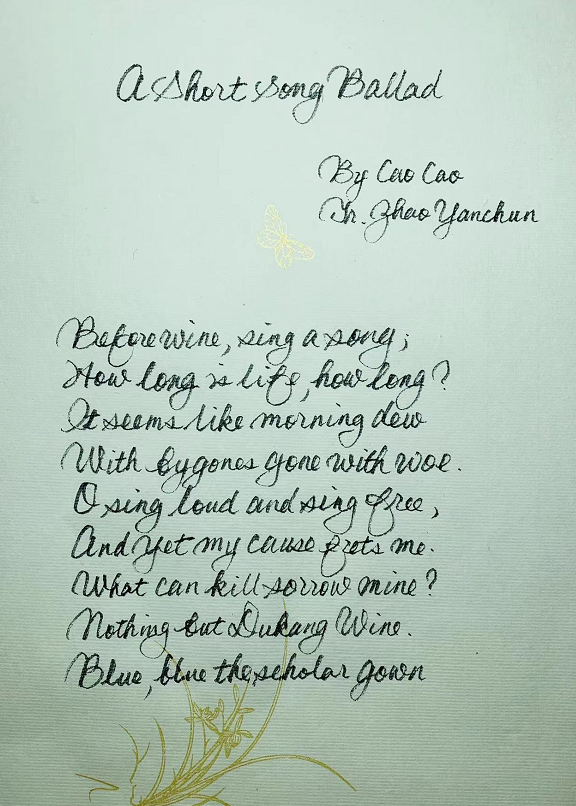 A Short Song Ballad
By Cao Cao
Tr. Zhao Yanchun
Before wine, sing a song;
How long is life, how long?
It seems like morning dew
With bygones gone with woe.
O sing loud and sing free,
And yet my cause frets me.
What can kill sorrow mine?
Nothing but Dukang Wine.
Blue, blue the scholar gown